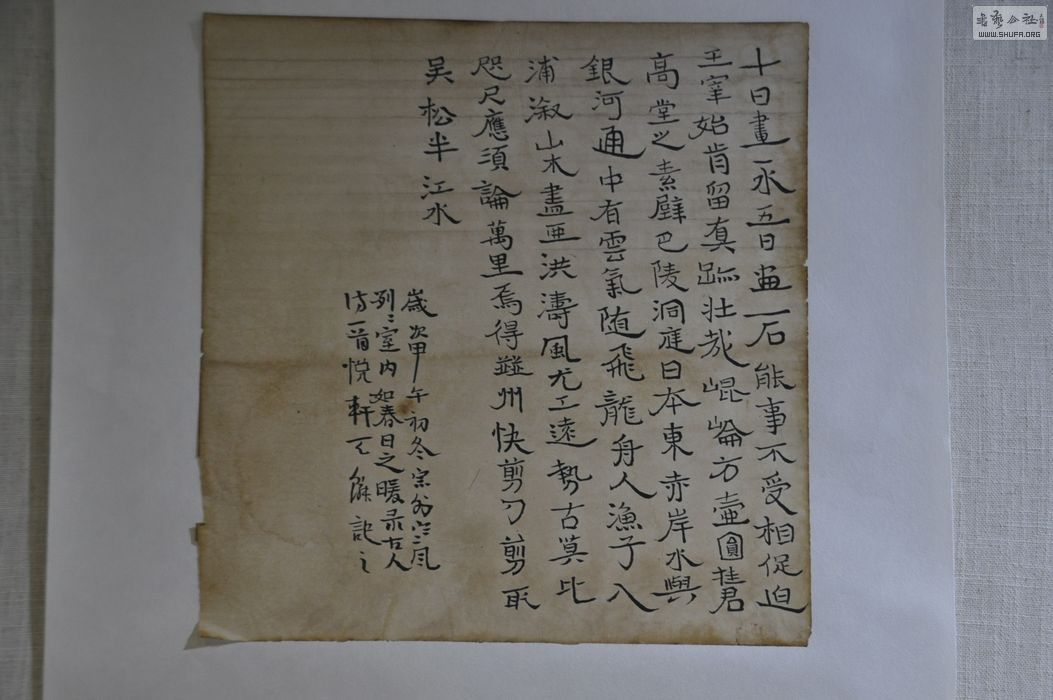 十日畫一水五日畫一石能事不受相促迫
王宰始肯留真跡壯哉崐崘方壺圓挂君
高堂之素壁巴陵洞庭日本東赤岸水與
銀河通中有雲氣随飛龍舟人漁子入
浦溆山木盡亞洪濤風尤工遠勢古莫比
咫尺應須論萬里焉得并州快剪刀剪取
吴松半江水
歲次甲午初冬風
列〻室内如春日之暖录古人
诗一首悦軒記之
书艺公社
WWW.SHUFA.ORG